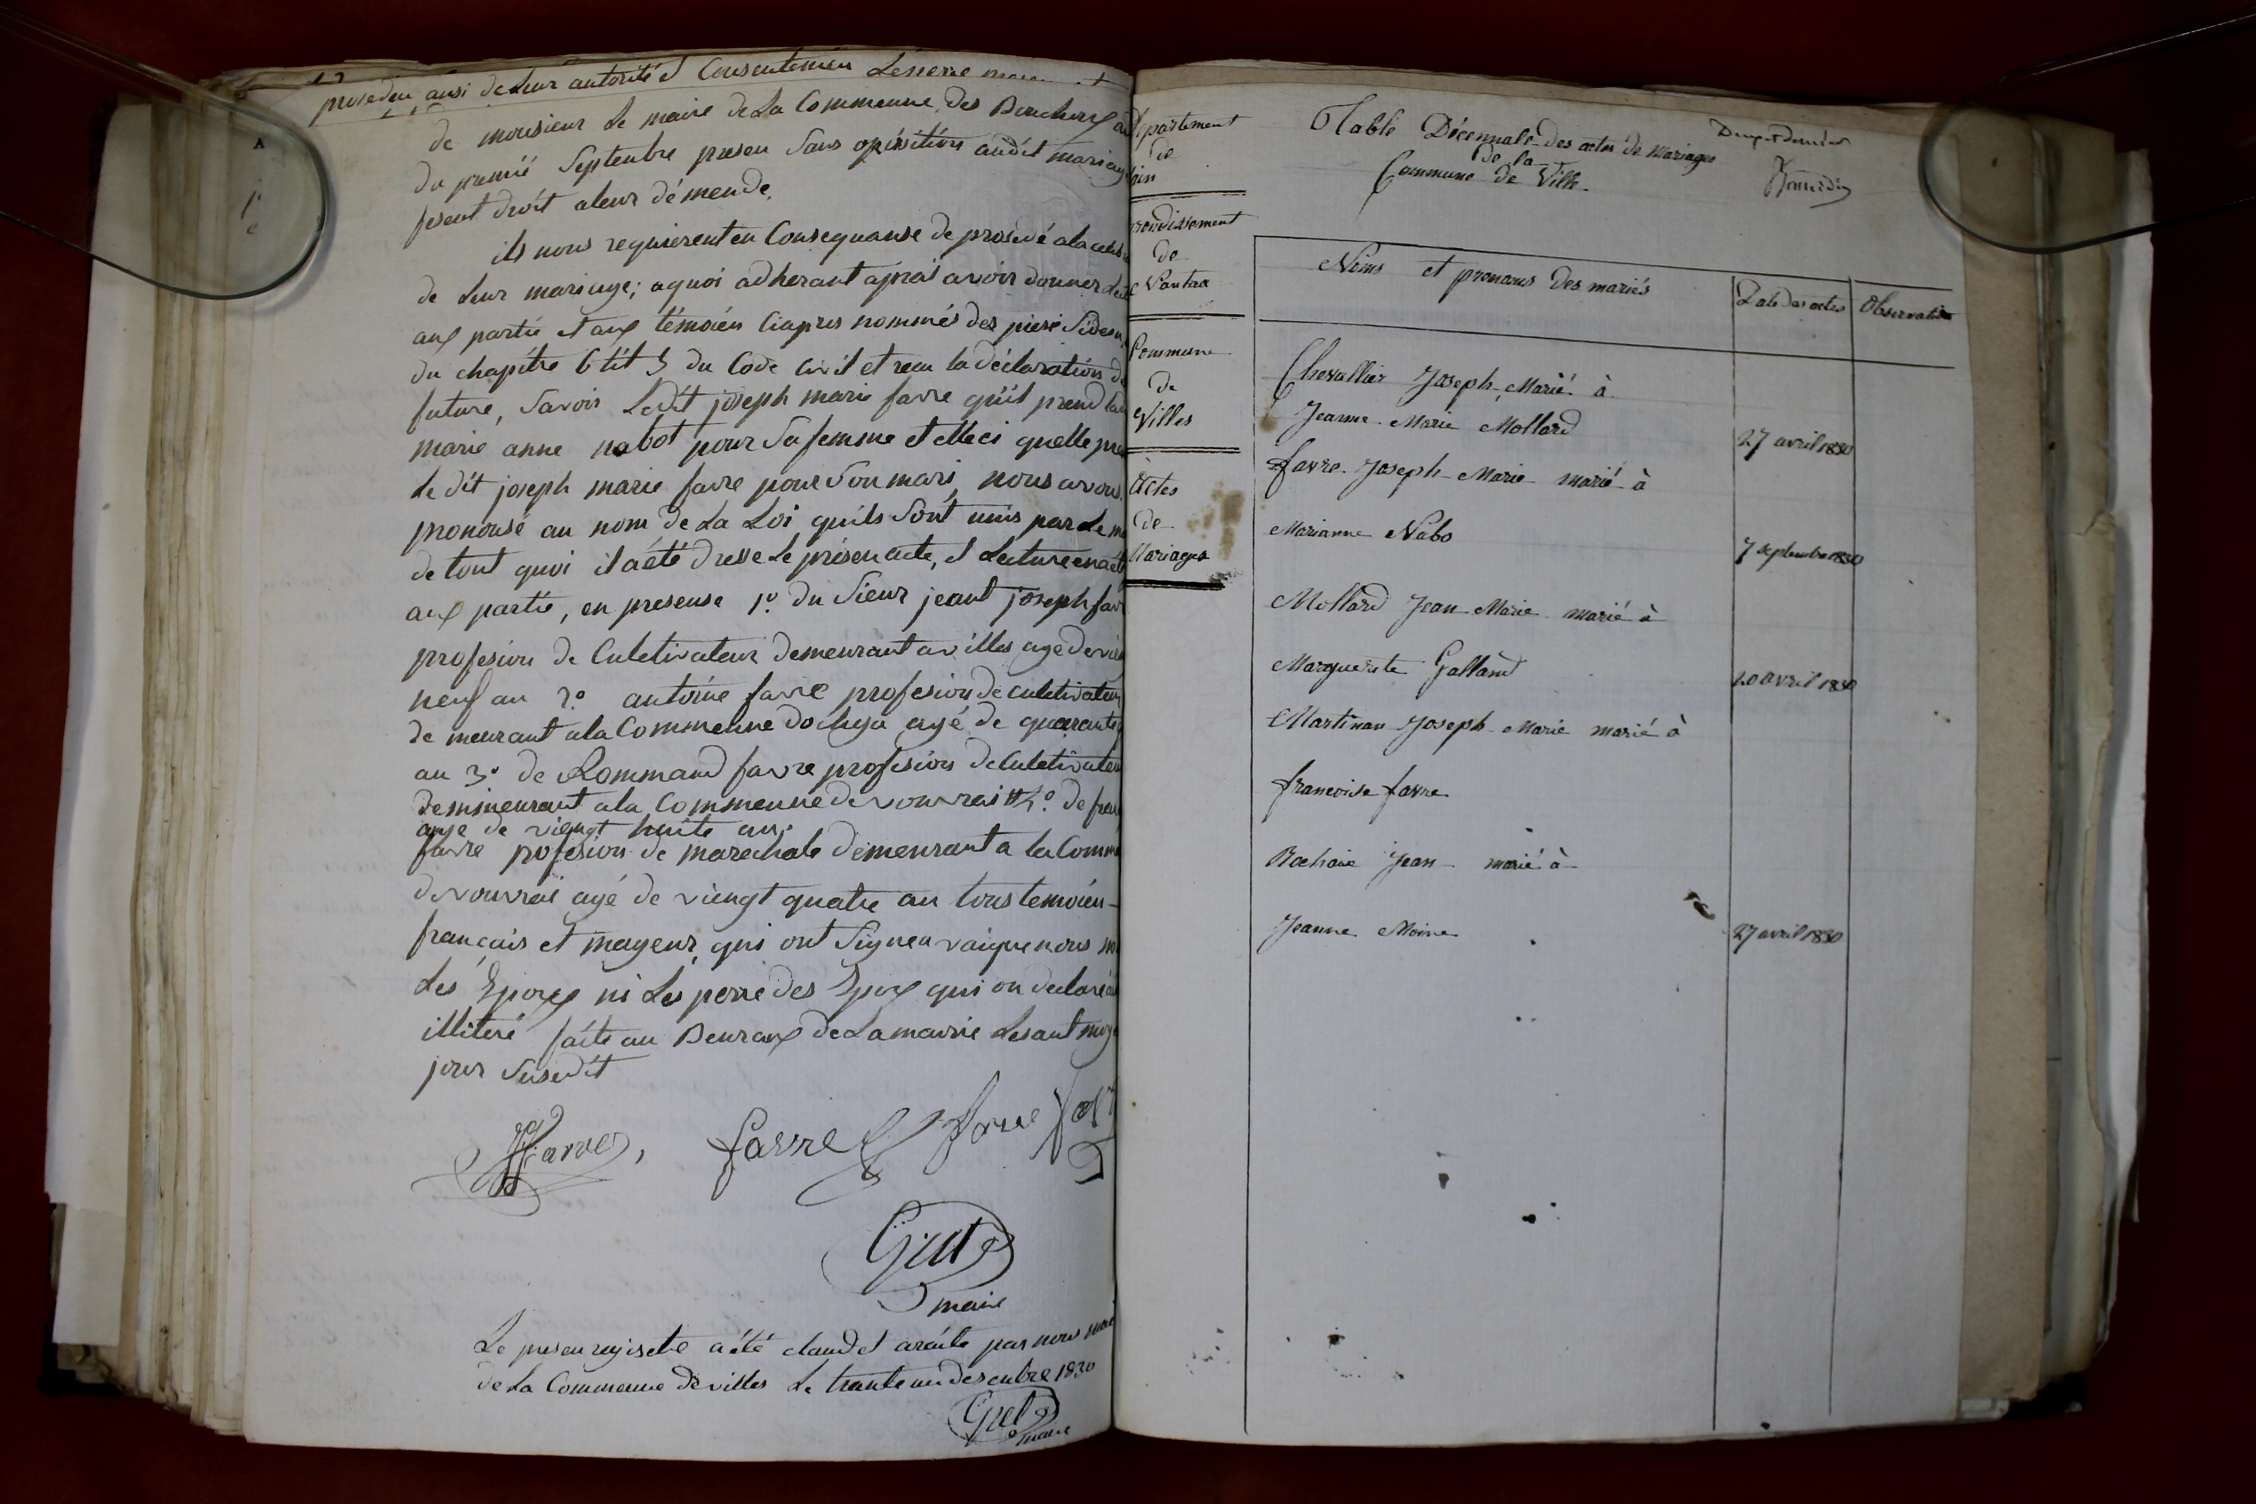 de monsieur Le maire de La Commeune des Bouchoux
du premié Septenbre presen Sans opésitiön audit mariag
fesent droit aleur démende.
ils nous requierent en Consequanse de prosedé ala
de Leur mariage; aquoi adherant aprai avoir donner
aux partie et aux témoien Ciapres nommés des piese
du chapitre 6 tit 5 du Code Civil et recu la déclaration d
future, Savoir Ledit joseph marie favre quil prend
marie anne nabot pour Sa femme et elleci quelle pre
Le dit joseph marie favre pour Son mari, nous avons
pronousé au nom de La Loi quils Sont unis par Le
de tout quoi il a été dresse Le présen acte, et Lecture en a
aux partie, en presense 1º. du Sieur jeant joseph fav
profesion de Culetivateur demeurant a villes age de
neuf an 2º. antoine favre profesion de culetivateur
de meurant ala Commeune dochya agé de quarante
an 3º de Rommand favre profesion de Culetivateu
demmeurant ala Commeune de vouvrai 4º. de
age de viengt huite an.
favre profesion de marechale demeurant a la Comm
de vouvrai agé de viengt quatre an tous temoien
francais et mageur, qui ont Signe avaique nous
Les Epoux ni Les perre des Epoux qui on declaré
illiteré faite au Beuraux de La mairie Les ant
jour Susedit
JJ favre, favre favre fav
Grut
maire
Le presen regisetre a été claud et arrête par nous
de La Commeune de villes Le trante un desenbre 1830
Grut
maire
Département
de
Lain
Arrondissement
de
Nantua
Commune
de
Villes
Actes
de
Mariages
Table Décennale des actes de mariages
de la
Commune de Ville
Noms et prenoms des mariés
Date des actes
Observation
Chevallier Joseph, Marié à
Jeanne Marie Mollard
27 avril 1830
favre Joseph Marie marié à
Marianne Nabo
7 septembre 1830
Mollard Jean Marie marié à
Marguerite Galland
20 avril 1830
Martinan Joseph Marie marié à
francoise favre
Rochaix Jean marié à
Jeanne Moine
27 avril 1830